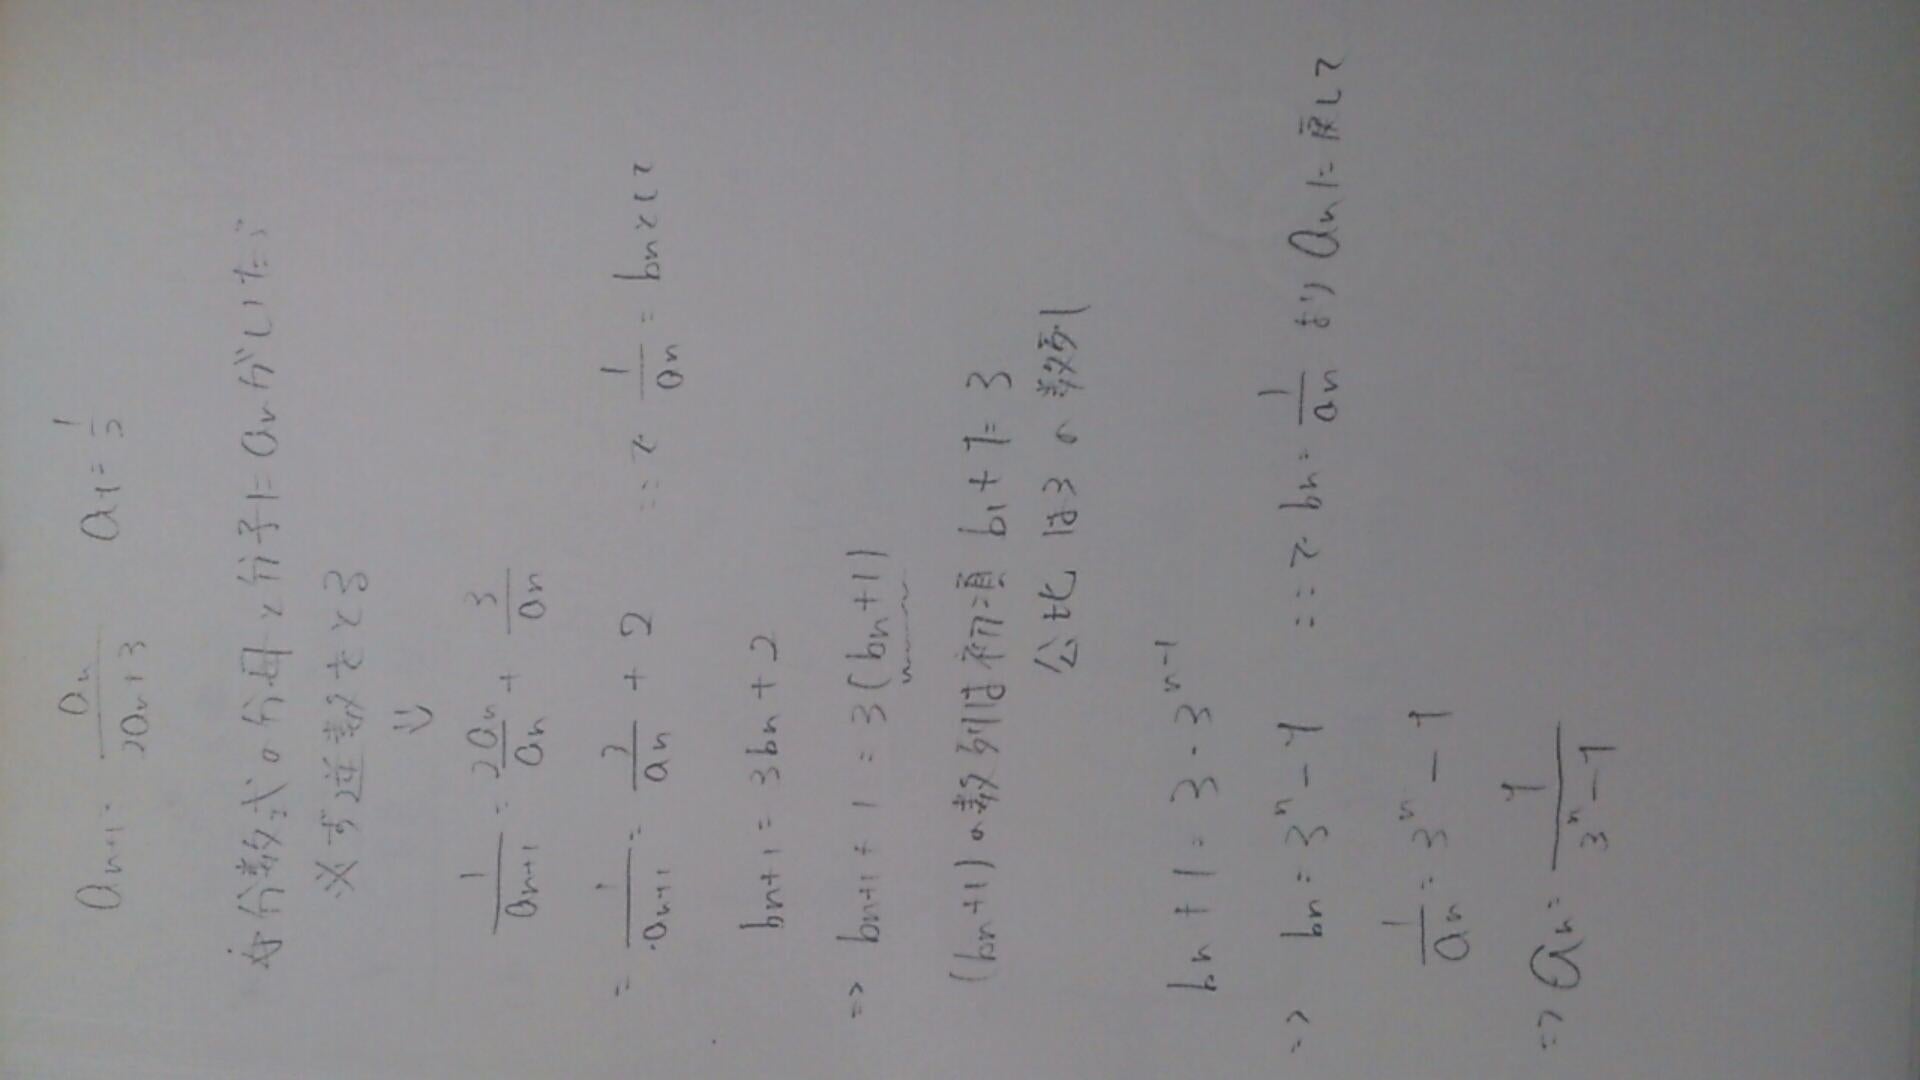 an+1 = an/(2an+3)  a1 = 1/2
☆分数式の分母と分子にanがいたら
必ず逆数をとる
⇓
1/an+1 = 2an/an + 3/an
= 1/an+1 = 3/an + 2  ここで 1/an = bnとして
bn+1 = 3bn + 2
=> bn+1 + 1 = 3(bn+1)
(bn+1)の数列は初項 b1+1=3
公比は3の数列
bn + 1 = 3・3^(n-1)
=> bn = 3^n - 1  ここで bn = 1/an より anに戻して
1/an = 3^n - 1
=> an = 1/(3^n - 1)